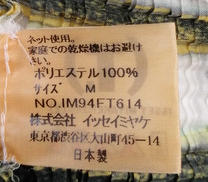 ネット使用。
家庭での乾燥機はお避け
さい。
ポリエステル100%
サイズ M
NO.IM94FT614
株式会社 イッセイミヤケ
東京都渋谷区大山町45-14
日本製